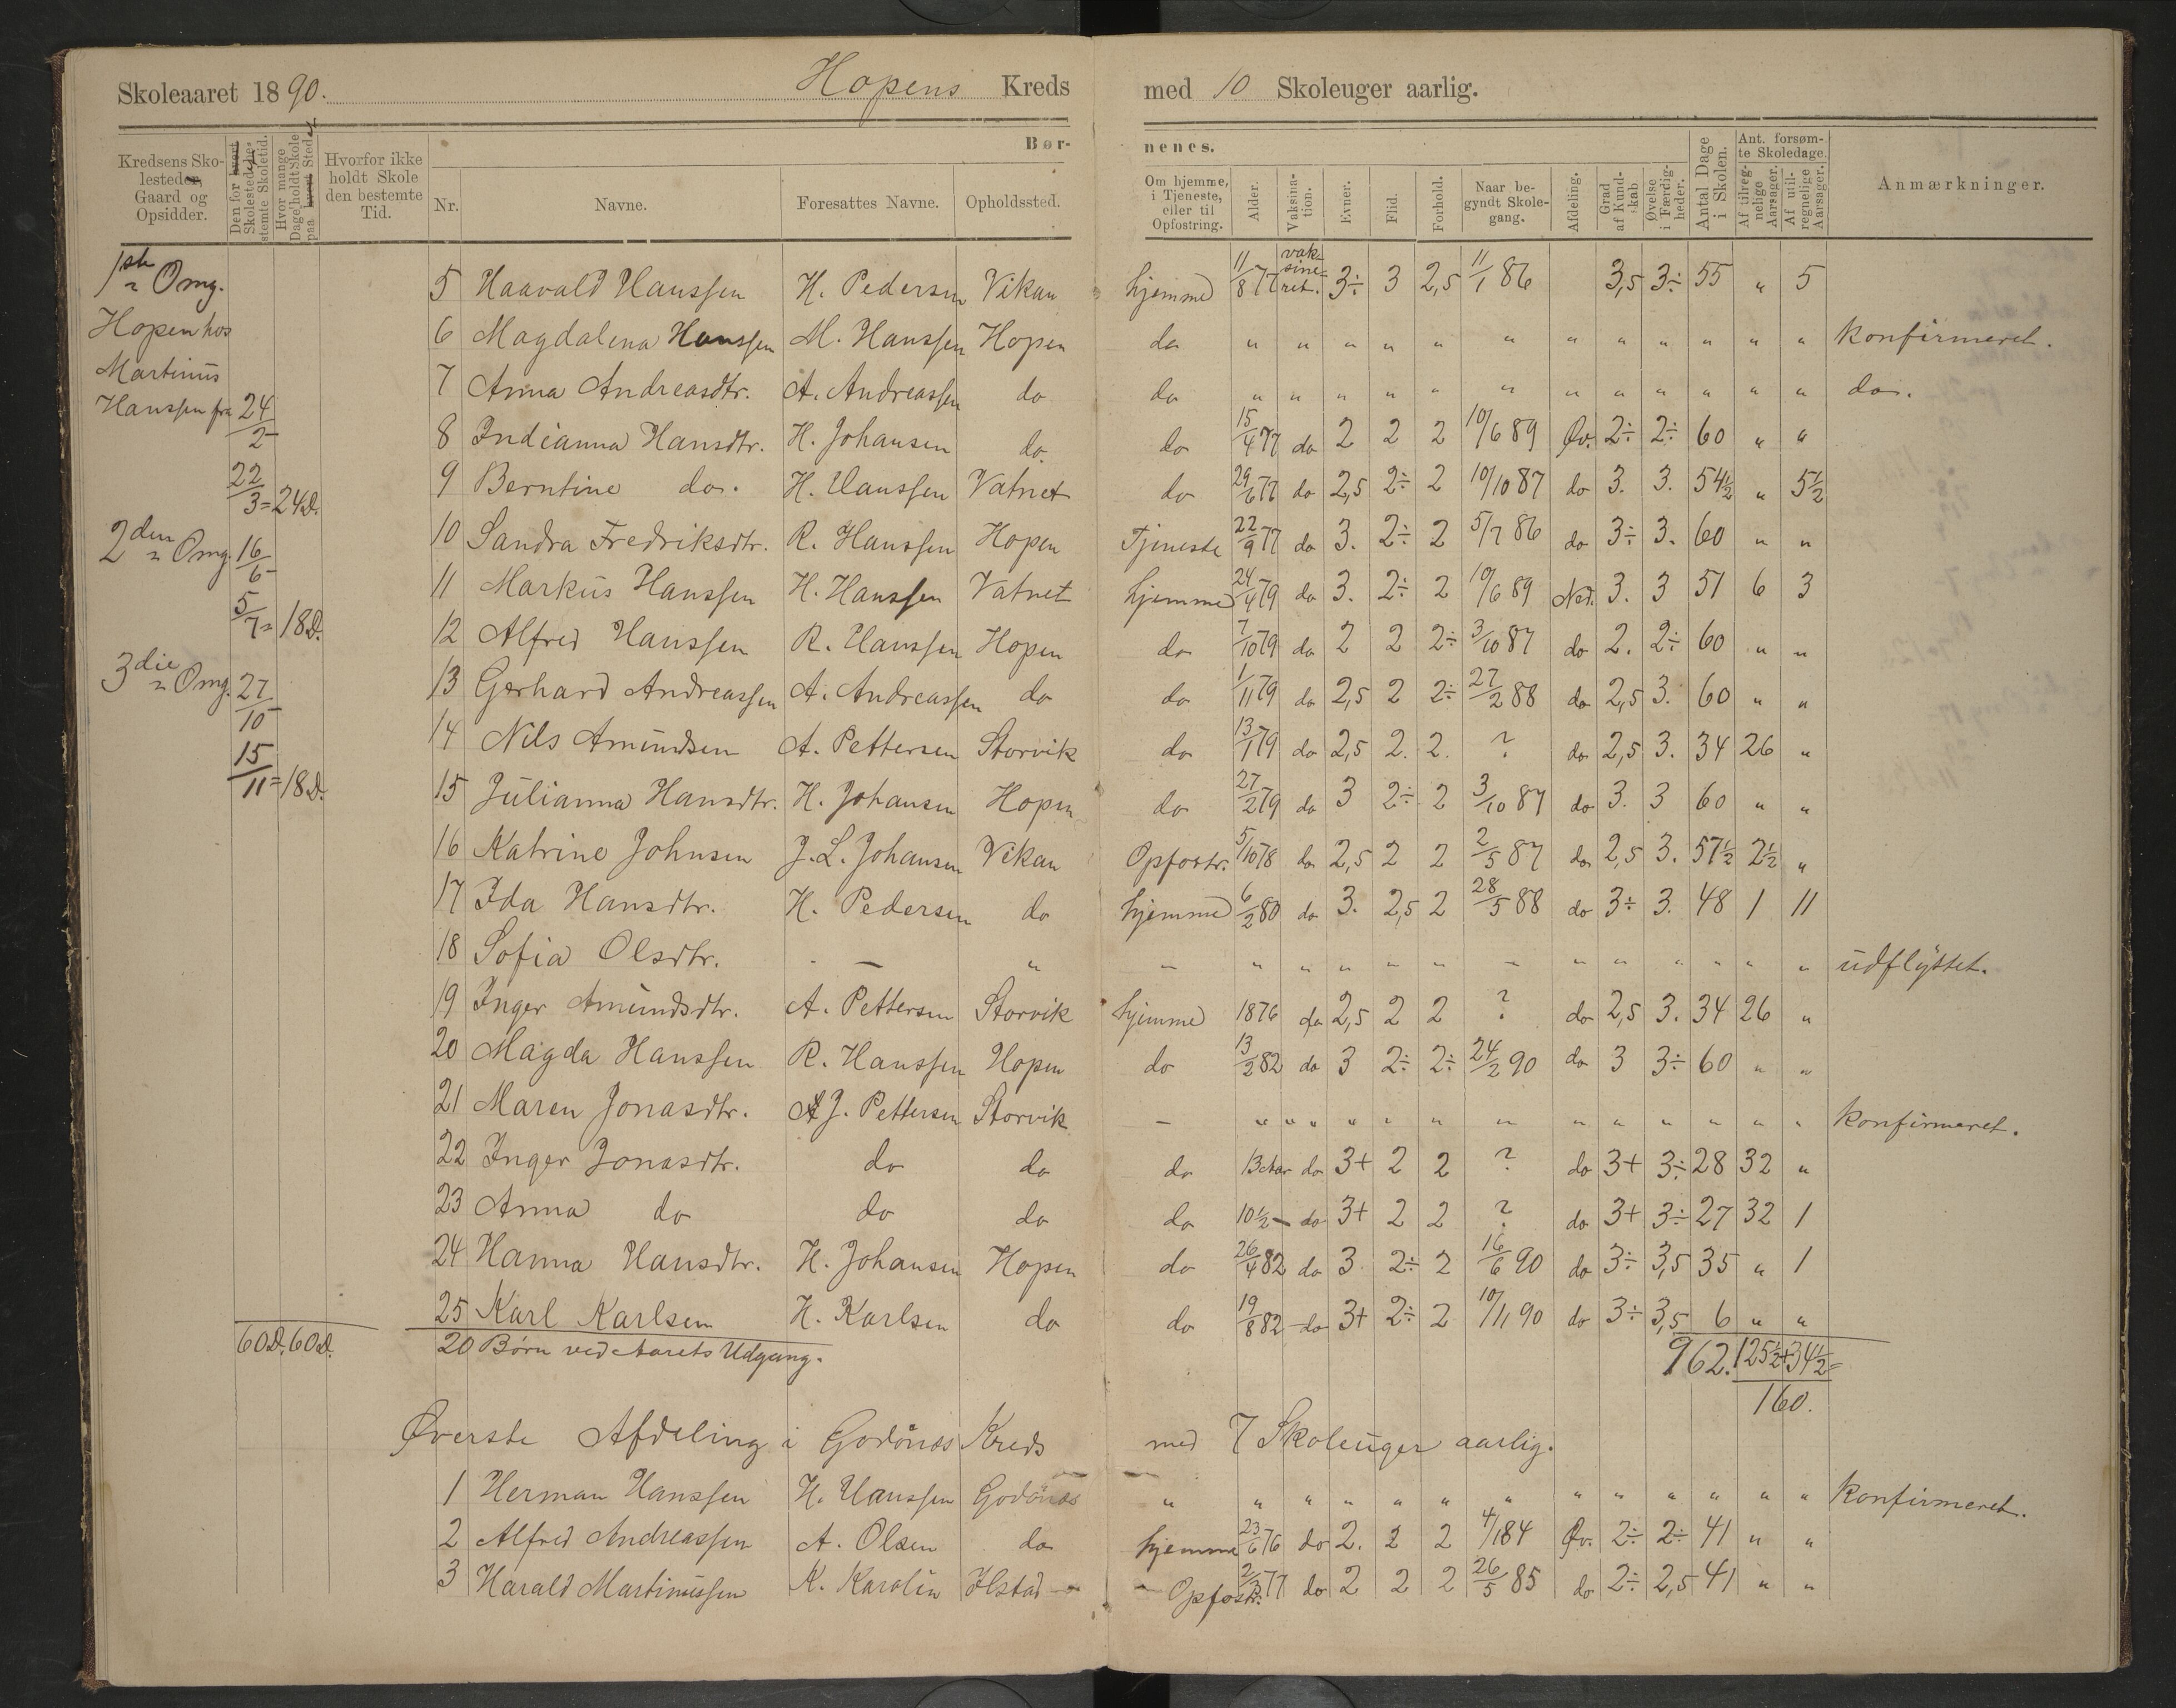 Skoleaaret 1890. Hopens Kreds med 10 Skoleuger aarlig.
Kredsens Skolesteder, Gaard og Opsidder.
Den for hvert Skolested bestemte Skoletid.
Hvor mange Dage holdt Skole paa hvert Sted.
Hvorfor ikke holdt Skole den bestemte Tid.
Børnenes.
Nr. Navne. Foresattes Navne. Opholdssted. Om hjemme, i Tjeneste, eller til Opfostring. Alder. Vaksination. Evner. Flid. Forhold. Naar begyndt Skolegang. Afdeling. Grad af Kundskab. Øvelse i Færdigheder. Antal Dage i Skolen. Ant. forsømte Skoledage. Af tilregnelige Aarsager. Af utilregnelige Aarsager. Anmærkninger.
1ste Omg.
Hopen hos
Martinus
Hanssen fra 24/2
22/3 = 24 D.
2den Omg. 16/6
5/7 = 18 D.
3die Omg. 27/10
15/11 = 18 D.
60 D. 60 D.
5 Haavald Hanssen H. Pedersen Vikan hjemme 11/8 77 vaksineret. 3÷ 3 2,5 11/1 86 3,5 3÷ 55 " 5
6 Magdalena Hanssen M. Hanssen Hopen do " " " " " " " " " " " " konfirmeret.
7 Anna Andreasdtr. A. Andreassen do do " " " " " " " " " " " " do.
8 Indianna Hansdtr. H. Johansen do. do 15/4 77 do 2 2 2 10/6 89 Øv. 2÷ 2÷ 60 " "
9 Berntine do. H. Hanssen Vatnet do 29/6 77 do 2,5 2÷ 2 10/10 87 do 3. 3. 54½ " 5½
10 Sandra Fredriksdtr. R. Hanssen Hopen Tjeneste 22/9 77 do 3. 2÷ 2 5/7 86 do 3÷ 3. 60 " "
11 Markus Hanssen H. Hanssen Vatnet hjemme 24/4 79 do 3. 2÷ 2 10/6 89 Ned. 3. 3 51 6 3
12 Alfred Hanssen R. Hanssen Hopen do 7/10 79 do 2 2 2÷ 3/10 87 do 2. 2÷ 60 " "
13 Gerhard Andreassen A. Andreassen do do 1/11 79 do 2,5 2 2÷ 27/2 88 do 2,5 3. 60 " "
14 Nils Amundsen A. Pettersen Storvik do 13/1 79 do 2,5 2. 2. ? do 2,5 3. 34 26 "
15 Julianna Hansdtr. H. Johansen Hopen do 27/2 79 do 3 2÷ 2 3/10 87 do 3. 3 60 " "
16 Katrine Johnsen J. L. Johansen Vikan Opfostr. 5/10 78 do 2,5 2 2 2/5 87 do 2,5 3. 57½ 2½ "
17 Ida Hansdtr. H. Pedersen do hjemme 6/2 80 do 3. 2,5 2 28/5 88 do 3÷ 3. 48 1 11
18 Sofia Olsdtr. - — " — " " " " " — " " " " " " udflyttet.
19 Inger Amundsdtr. A. Pettersen Storvik hjemme 1876 do 2,5 2 2 ? do 2,5 3. 34 26 "
20 Magda Hanssen R. Hanssen Hopen do 13/2 82 do 3 2÷ 2÷ 24/2 90 do 3 3÷ 60 " "
21 Maren Jonasdtr. J. Pettersen Storvik — " " " " " " " " " " " " " konfirmeret.
22 Inger Jonasdtr. do do do 13 Aar do 3+ 2 2 ? do 3+ 3÷ 28 32 "
23 Anna do do do do 10½ — do 3+ 2 2 ? do 3+ 3÷ 27 32 1
24 Hanna Hansdtr. H. Johansen Hopen do 26/4 82 do 3 2÷ 2 16/6 90 do 3÷ 3,5 35 " 1
25 Karl Karlsen H. Karlsen do do 19/8 82 do 3+ 2÷ 2 10/11 90 do 3÷ 3,5 6 " "
20 Børn ved Aarets Udgang. 962. 125½ + 34½ =
160.
Øverste Afdeling i Godönæs Kreds med 7 Skoleuger aarlig.
1 Herman Hanssen H. Hanssen Godönæs " " " " " " " " " " " " " konfirmeret.
2 Alfred Andreassen A. Olsen do hjemme 23/6 76 do 2. 2 2 4/1 84 Øv. 2÷ 2÷ 41 " "
3 Harald Martinussen K. Karolin Ilstad Opfostr. 77 do 2 2 2 26/5 85 do 2÷ 2,5 41 " "